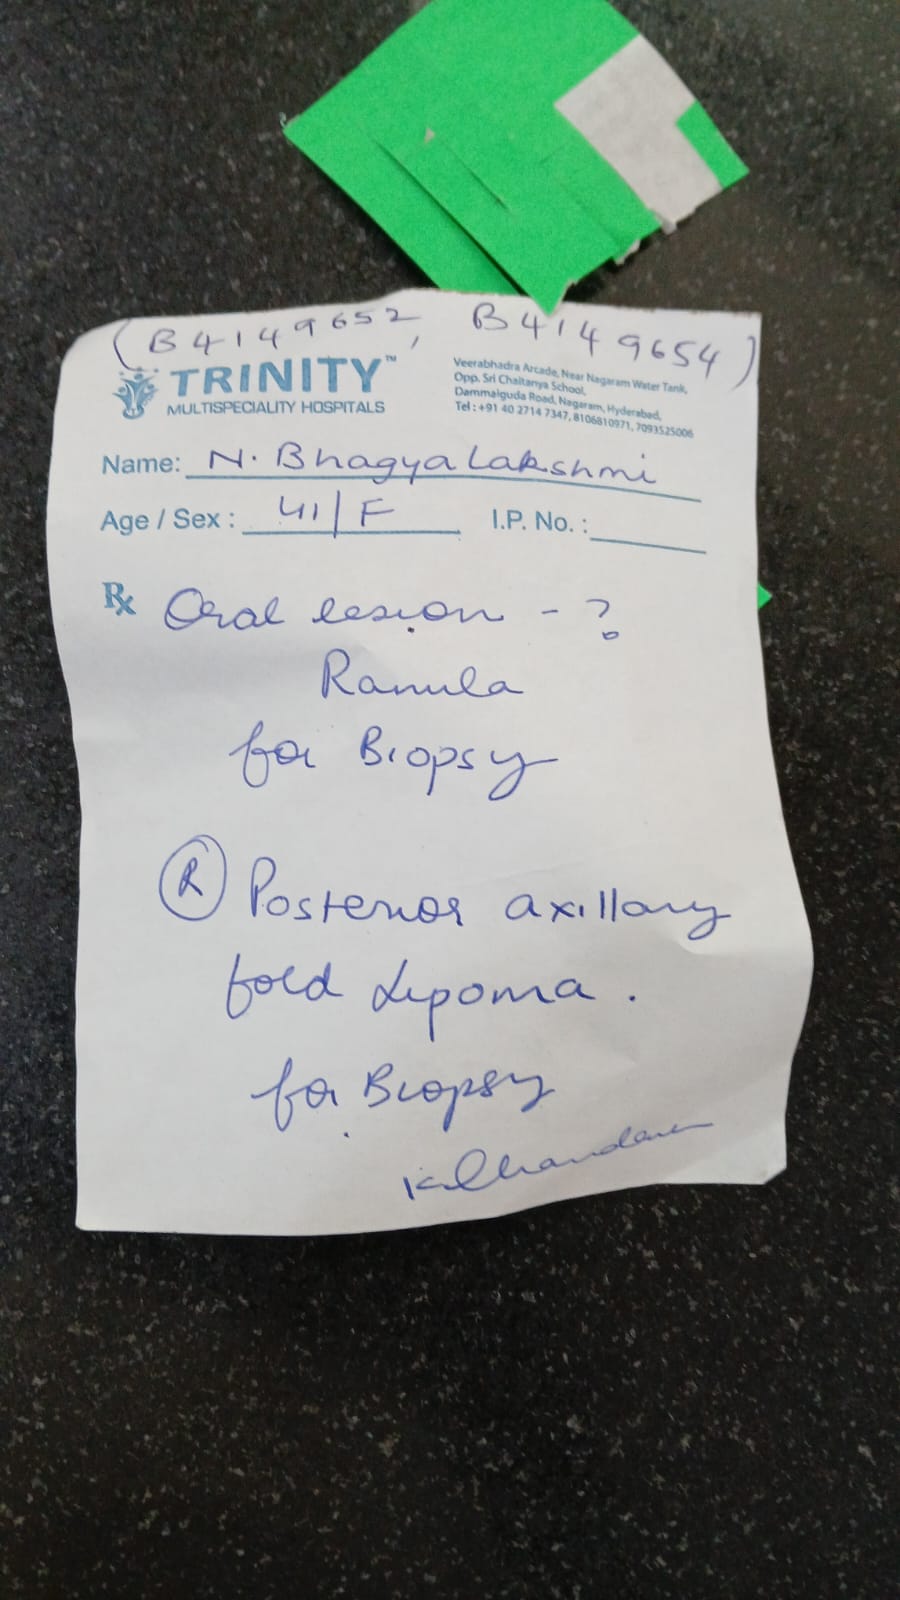 (B4149652, B4149654)
TRINITY™
MULTISPECIALITY HOSPITALS
Veerabhadra Arcade, Near Nagaram Water Tank,
Opp. Sri Chaitanya School,
Dammaiguda Road, Nagaram, Hyderabad,
Tel : +91 40 2714 7347, 8106810971, 7093525006
Name: N. Bhagya Lakshmi
Age / Sex : 41/F I.P. No. :
Rx Oral lesion - ?
Ranula
for Biopsy
(R) Posterior axillary
fold Lipoma.
for Biopsy